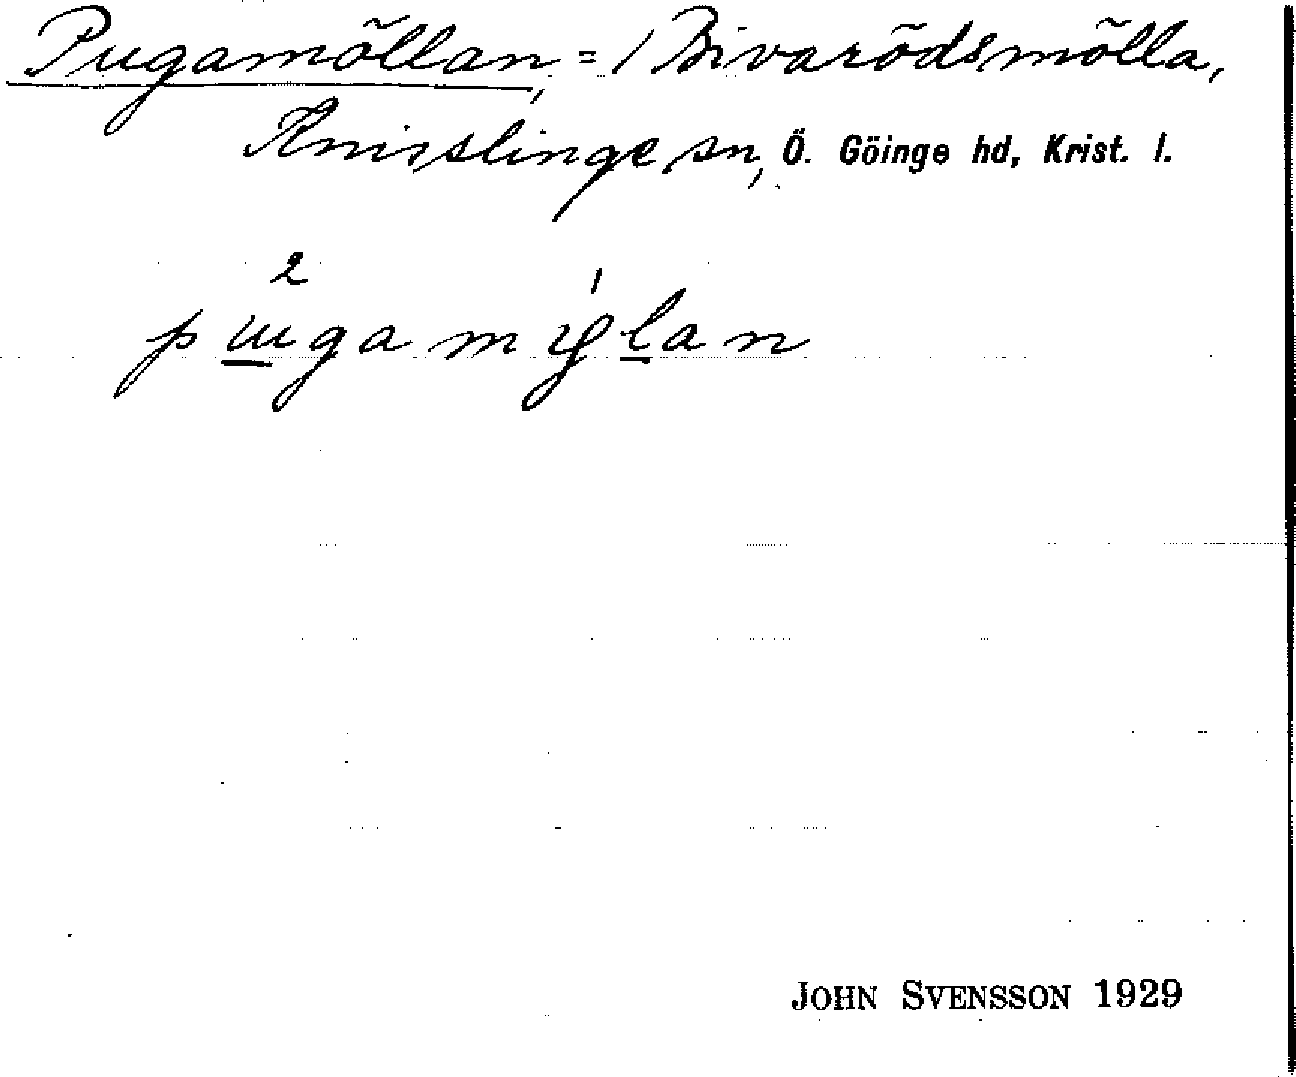 Pugamöllan, = / Bivarödsmölla,
Knisslinge sn, Ö. Göinge hd, Krist. l.
JOHN SVENSSON 1929